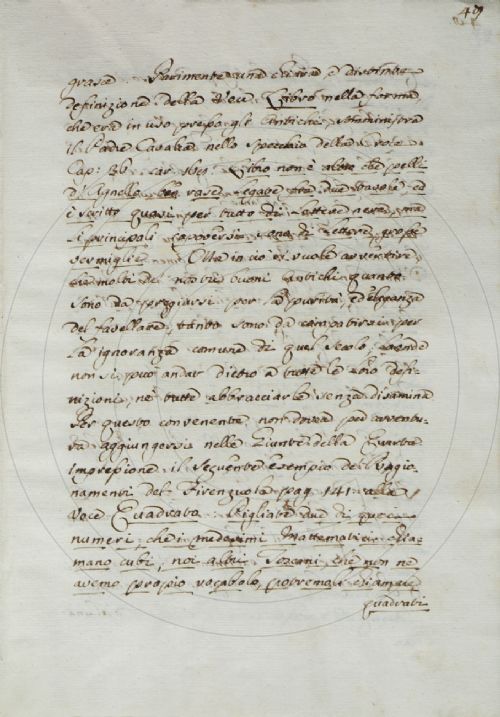 49
grasce Parimente una chiara e distinta
definizione della Voce Libro nella forma,
che era in uso presso gli Antichi, somministra
il Padre Cavalca nello Specchio della Croce
Cap. 36. car. 169. Libro non è altro che pelle
d'Agnello ben rasa legata tra due tavole ed
è scritto quasi per tutto di lettere nere, ma
li principali capoversi sono di lettere grosse
vermiglie. Oltra in ciò si vuole avvertire
che molti dei nostri buoni Antichi quanto
sono da pregiarsi per la purità, ed eleganza
del favellare, tanto sono da compatirsi per
la ignoranza comune di quel Secolo, laonde
non si può andar dietro a tutte le loro defi-
nizioni, nè tutte abbracciarle senza disamina
Per questo convenente non dovea per avventu-
ra aggiungersi nelle Giunte della Quarta
impressione il seguente esempio dei Ragio-
namenti del Firenzuola pag. 141 alla
Voce Quadrato. Pigliate due di que'
numeri, che i medesimi Mattematici chia-
mano cubi, noi altri Toscani, che non ne
avemo proprio vocabolo, potremo chiamare
quadrati